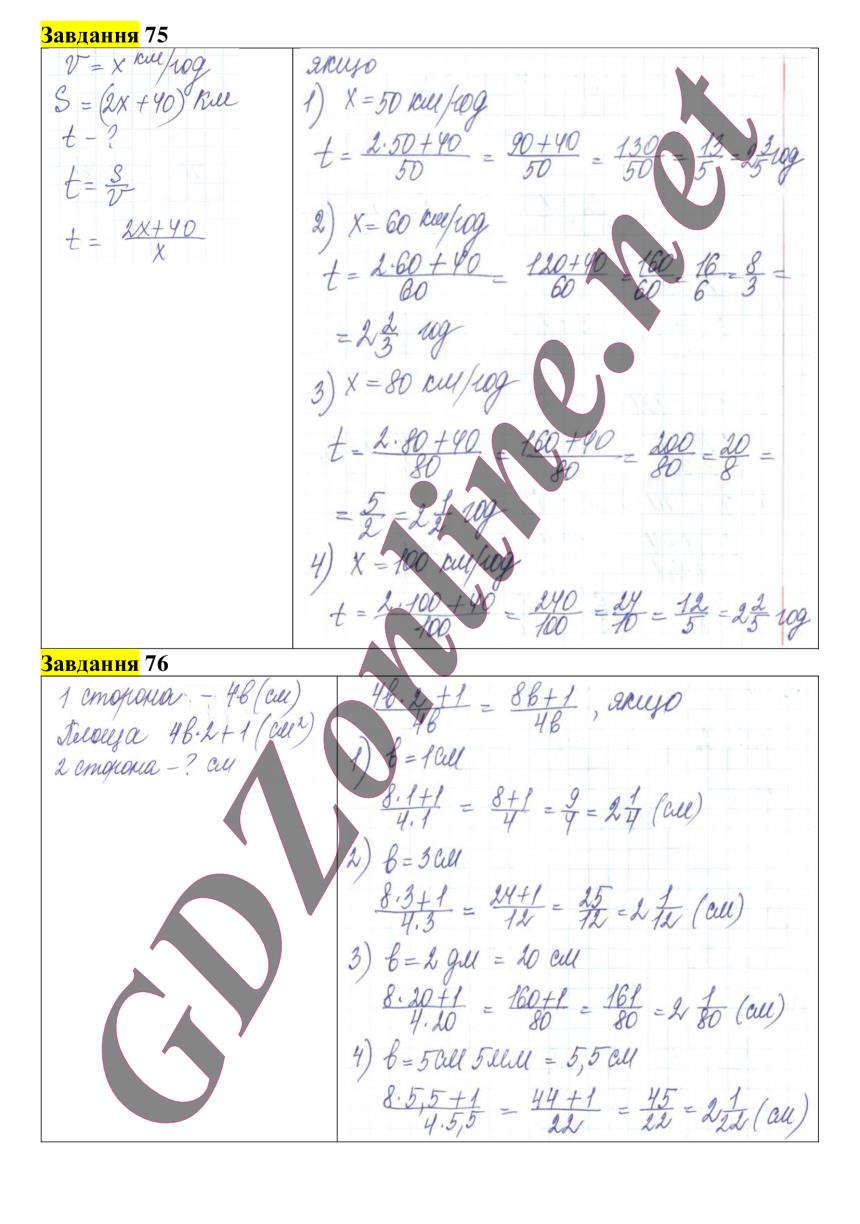 Завдання 75
v = x км/год
S = (2x+40) км
t - ?
t = S/v
t = (2x+40)/x
якщо
1) x = 50 км/год
t = (2·50+40)/50 = (90+40)/50 = 130/50 = 13/5 = 2 3/5 год
2) x = 60 км/год
t = (2·60+40)/60 = (120+40)/60 = 160/60 = 16/6 = 8/3 =
= 2 2/3 год
3) x = 80 км/год
t = (2·80+40)/80 = (160+40)/80 = 200/80 = 20/8 =
= 5/2 = 2 1/2 год
4) x = 100 км/год
t = (2·100+40)/100 = 240/100 = 24/10 = 12/5 = 2 2/5 год
Завдання 76
1 сторона - 4в (см)
Площа 4в·2+1 (см²)
2 сторона - ? см
(4в·2+1)/4в = (8в+1)/4в , якщо
1) в = 1см
(8·1+1)/(4·1) = (8+1)/4 = 9/4 = 2 1/4 (см)
2) в = 3см
(8·3+1)/(4·3) = (24+1)/12 = 25/12 = 2 1/12 (см)
3) в = 2 дм = 20 см
(8·20+1)/(4·20) = (160+1)/80 = 161/80 = 2 1/80 (см)
4) в = 5см 5мм = 5,5 см
(8·5,5+1)/(4·5,5) = (44+1)/22 = 45/22 = 2 1/22 (см)
GDZonline.net